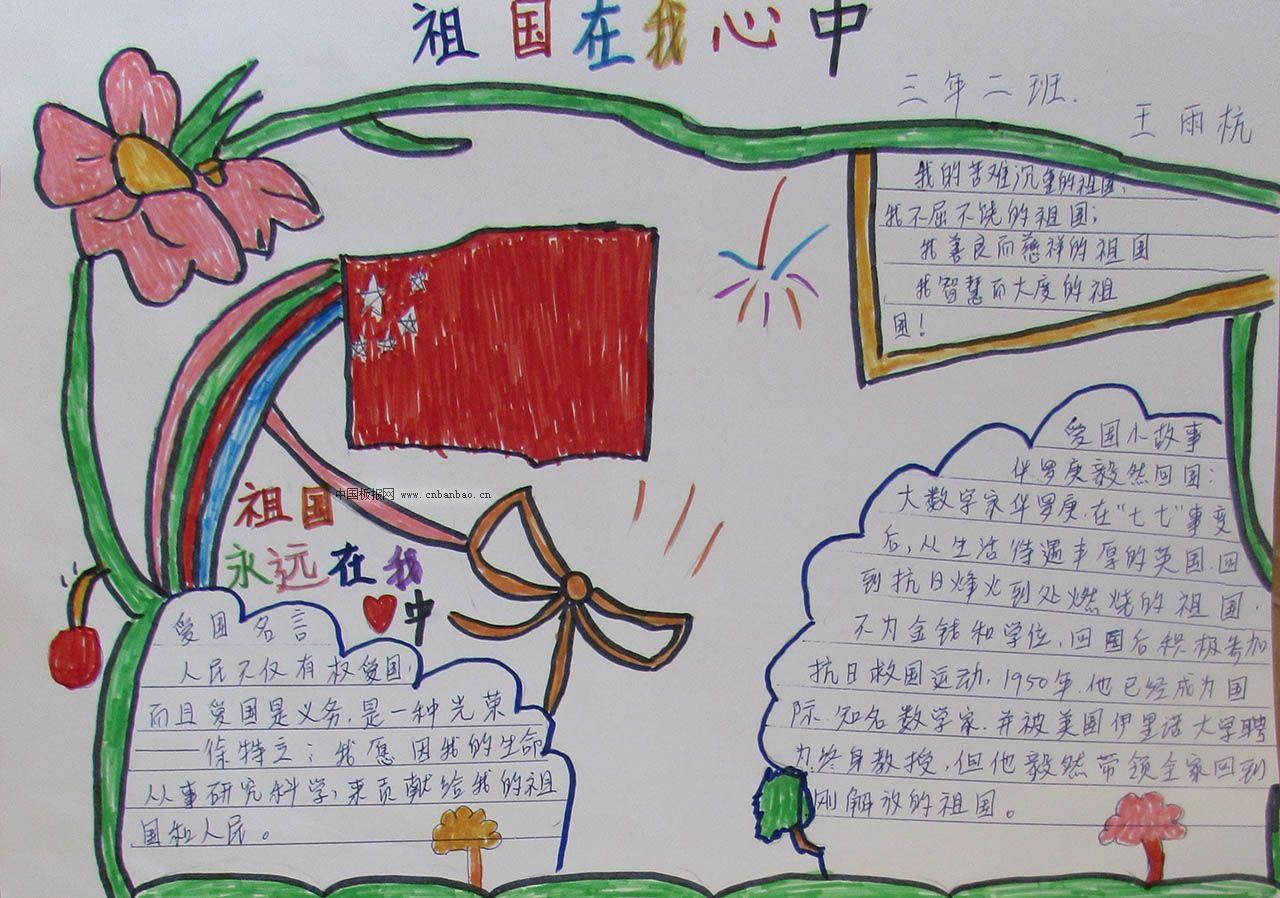 祖国在我心中
三年二班.
王雨杭
我的苦难沉重的祖国,
我不屈不饶的祖国;
我善良而慈祥的祖国
我智慧而大度的祖
国!
中国板报网 www.cnbanbao.cn
祖国
永远在我
中
爱国名言
人民不仅有权爱国,
而且爱国是义务,是一种光荣
——徐特立:我愿因我的生命
从事研究科学,来贡献给我的祖
国和人民。
爱国小故事
华罗庚毅然回国:
大数字家华罗庚,在“七七”事变
后,从生活待遇丰厚的英国,回
到抗日烽火到处燃烧的祖国,
不为金钱和学位,回国后积极参加
抗日救国运动,1950年,他已经成为国
际知名数学家,并被美国伊里诺大学聘
为终身教授,但他毅然带领全家回到
刚解放的祖国。